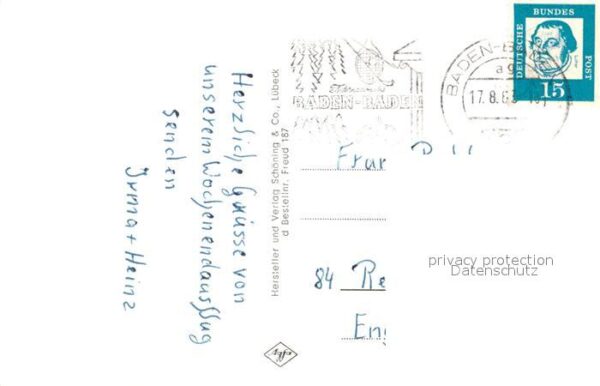 Herzliche Grüsse von
unserem Wochenendausflug
senden
Irma + Heinz
Hersteller und Verlag Schöning & Co., Lübeck
d Bestellnr. Freud 187
BADEN-BADEN
BADEN-B
ag
17.8.63
DEUTSCHE
BUNDES
POST
15
Frau
84 Re
Eng
privacy protection
Datenschutz
agfa